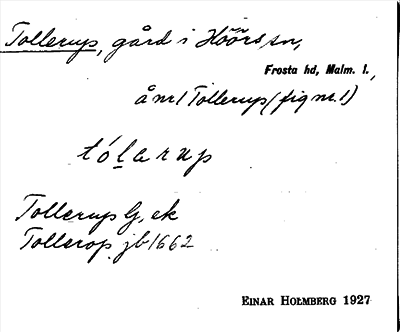 Tollerup, gård i Höörs sn,
Frosta hd, Malm. l.,
å nr 1 Tollerup (fig nr. 1)
tólarup
Tollerup G, ek
Tollerop jb 1662
EINAR HOLMBERG 1927